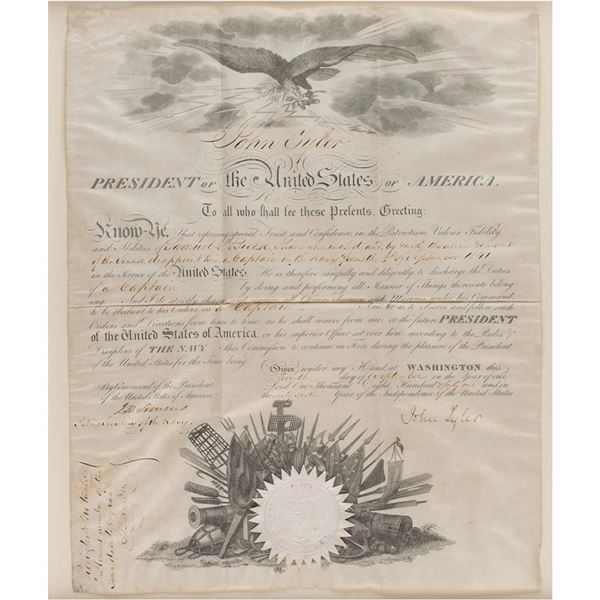 John Tyler
PRESIDENT OF the United States OF AMERICA.
To all who shall see these Presents, Greeting:
Know Ye, That reposing special Trust and Confidence in the Patriotism, Valour, Fidelity,
and Abilities of Samuel L. Breese I have nominated and by and with the advice and consent
of the Senate do appoint him a Captain in the Navy from the 8th September 1841
in the Service of the United States. He is therefore carefully and diligently to discharge the Duties
of a Captain by doing and performing all Manner of Things thereunto belong-
ing. And I do strictly charge and require all Officers Seamen and Marines under his Command
to be obedient to his Orders as a Captain And He is to observe and follow such
Orders and Directions from time to time as he shall receive from me or the future PRESIDENT
of the United States of America, or his superior Officer set over him according to the Rules &
Discipline of THE NAVY This Commission to continue in Force during the pleasure of the President
of the United States for the time being.
Given under my Hand at WASHINGTON this
day of in the Year of our
Lord One Thousand Eight Hundred forty one and in
the sixty sixth Year of the Independence of the United States.
By Command of the President
of the United States of America
Secretary of the Navy.
John Tyler